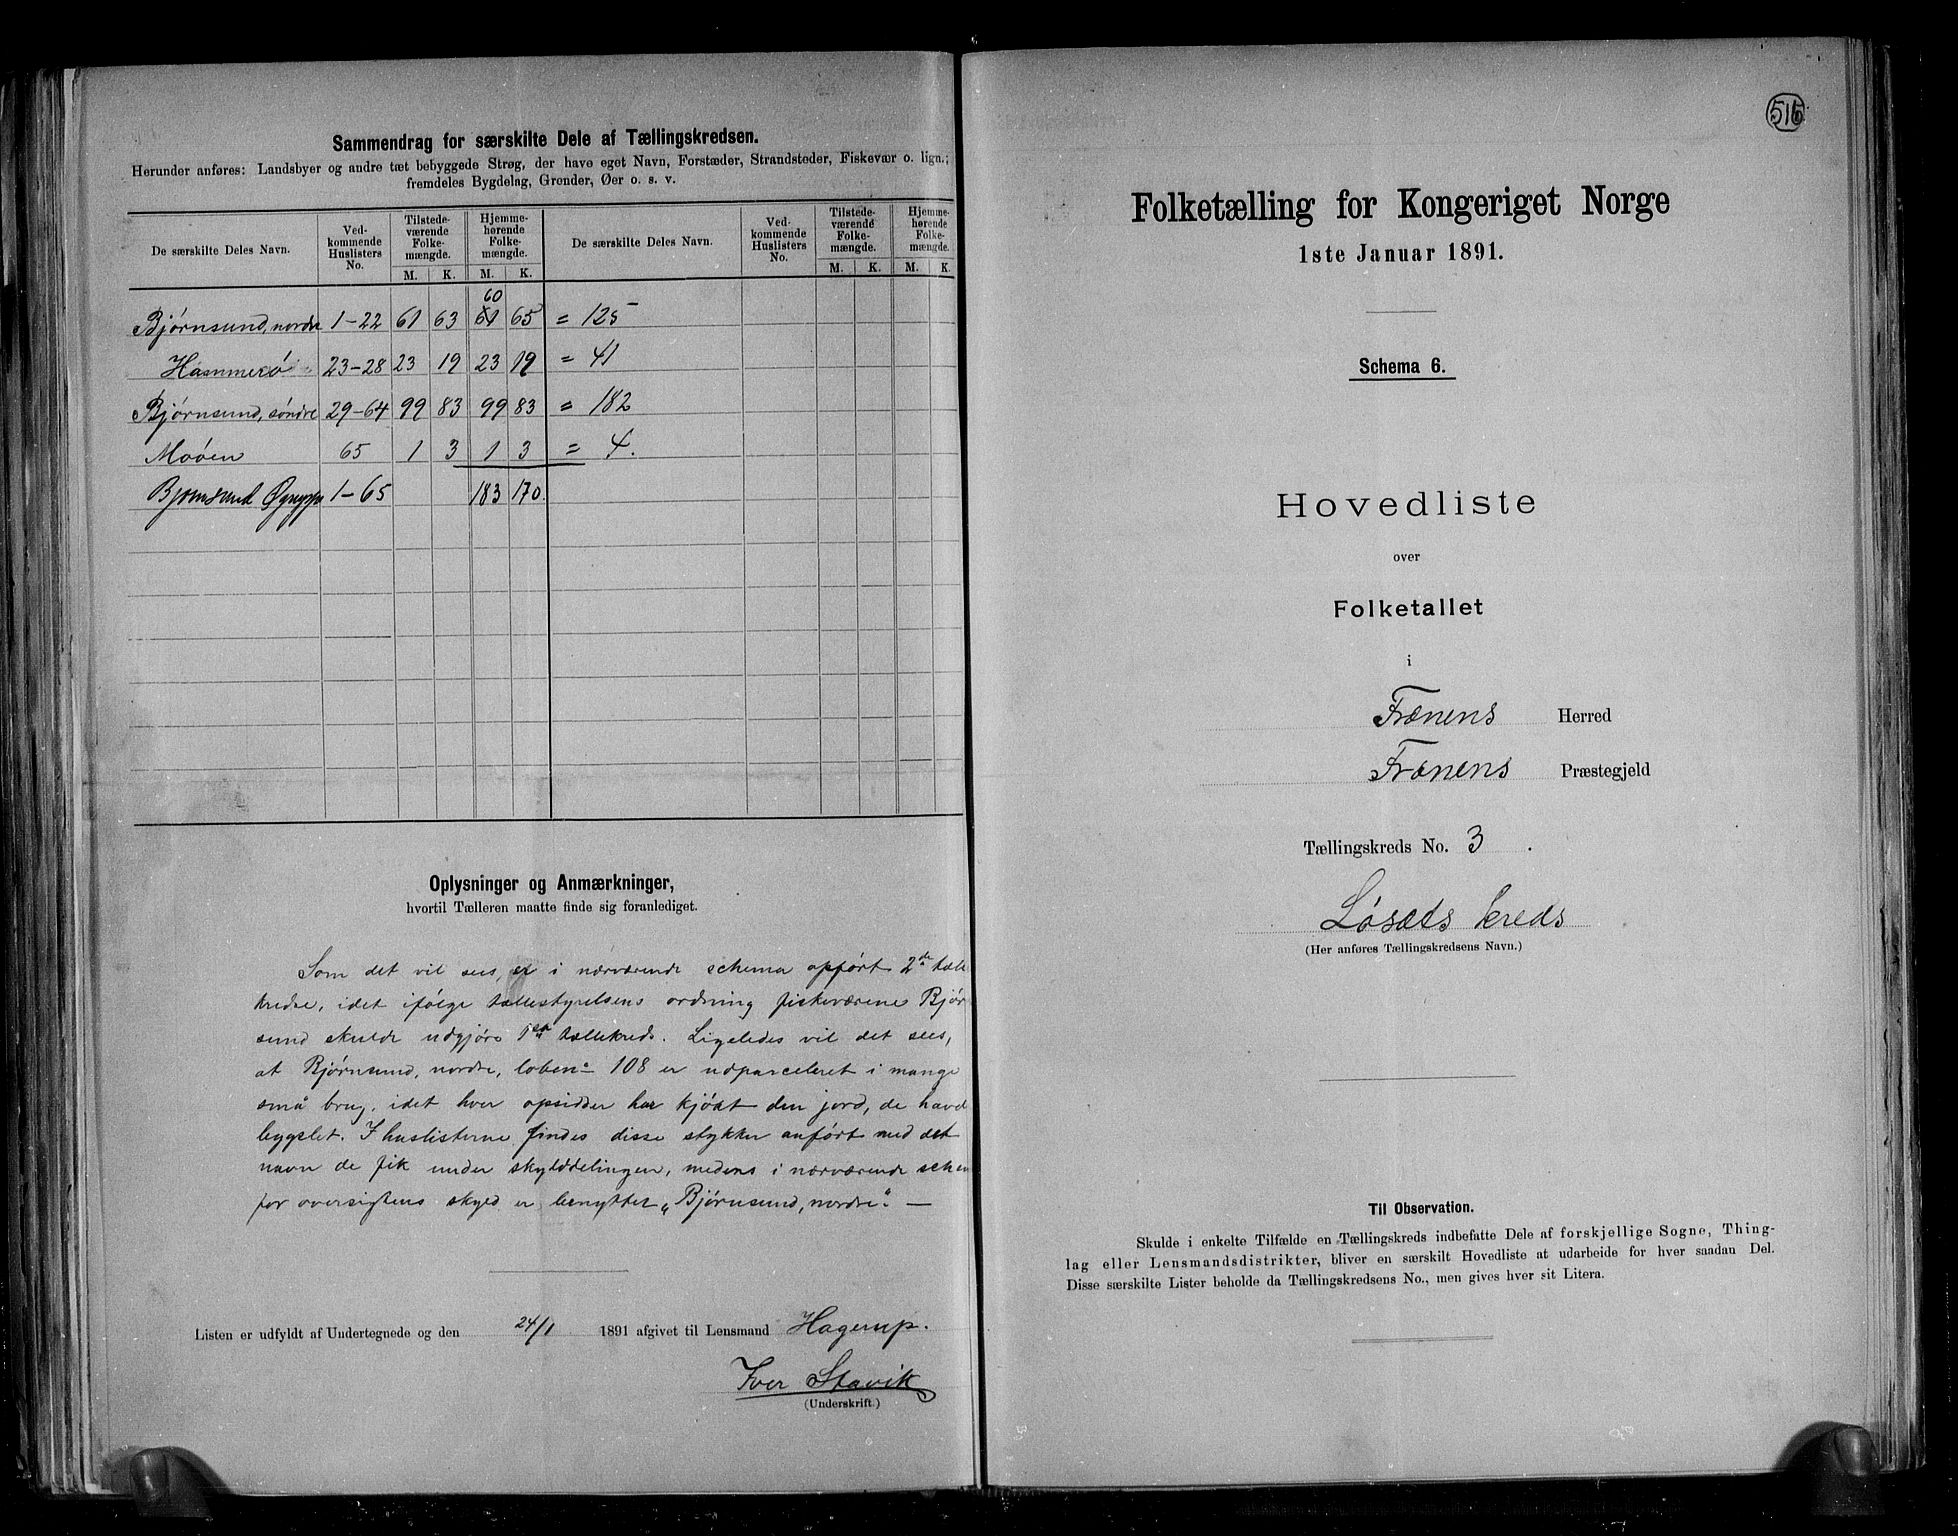 Sammendrag for særskilte Dele af Tællingskredsen.
Herunder anføres: Landsbyer og andre tæt bebyggede Strøg, der have eget Navn, Forstæder, Strandsteder, Fiskevær o. lign.;
fremdeles Bygdelag, Grender, Øer o. s. v.
De særskilte Deles Navn. Ved-kommende Huslisters No. Tilstede-værende Folke-mængde. Hjemme-hørende Folke-mængde. De særskilte Deles Navn. Ved-kommende Huslisters No. Tilstede-værende Folke-mængde. Hjemme-hørende Folke-mængde.
M. K. M. K. M. K. M. K.
60
Bjørnsund, nordre 1-22 61 63 61 65 = 125
Hammerö 23-28 23 19 23 19 = 41
Bjørnsund, søndre 29-64 99 83 99 83 = 182
Moöen 65 1 3 1 3 = 4.
Bjørnsund 1-65 183 170.
Oplysninger og Anmærkninger,
hvortil Tælleren maatte finde sig foranlediget.
Som det vil sees, er i nærværende schema opført 2de tælle
kredse, idet ifølge tællestyrelsens ordning fiskeværene Bjør
sund skulde udgjøre 1 tællekreds. Ligeledes vil det sees,
at Bjørnsund, nordre, löbeno 108 er udparceleret i mange
små brug, idet hver opsidder har kjöbt den jord, de havde
bygslet. I huslisterne findes disse stykker anført med det
navn de fik under skylddelingen, medens i nærværende schem
for oversigtens skyld er benyttet „Bjørnsund, nordre". —
Listen er udfyldt af Undertegnede og den 24/1 1891 afgivet til Lensmand Hagerup.
Iver Stavik
(Underskrift.)
515
Folketælling for Kongeriget Norge
1ste Januar 1891.
Schema 6.
Hovedliste
over
Folketallet
i
Frænens Herred
Frænens Præstegjeld
Tællingskreds No. 3.
Løsæts kreds
(Her anføres Tællingskredsens Navn.)
Til Observation.
Skulde i enkelte Tilfælde en Tællingskreds indbefatte Dele af forskjellige Sogne, Thing-
lag eller Lensmandsdistrikter, bliver en særskilt Hovedliste at udarbeide for hver saadan Del.
Disse særskilte Lister beholde da Tællingskredsens No., men gives hver sit Litera.